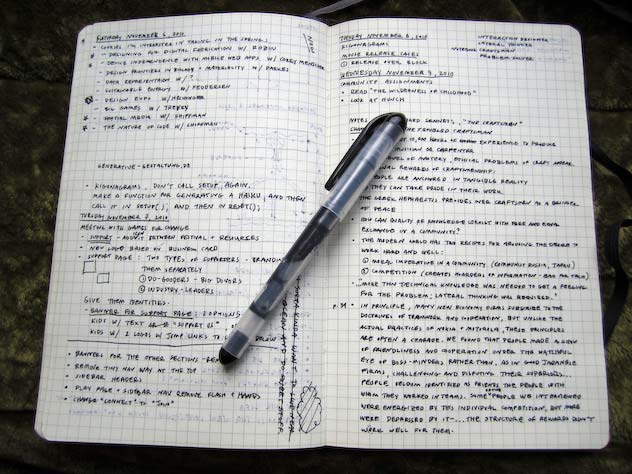 SATURDAY NOVEMBER 6, 2010
- COURSES I'M INTERESTED IN TAKING IN THE SPRING:
- DESIGNING FOR DIGITAL FABRICATION W/ ROZIN
- DEVICE INDEPENDENCE WITH MOBILE WEB APPS W/ COREY MENSCHER
- DESIGN FRONTIERS IN BIOLOGY + MATERIALITY W/ PARKES
- DATA REPRESENTATION W/ ?
- SUSTAINABLE ENERGY W/ FEDDERSEN
- DESIGN EXPO W/
- BIG GAMES W/
- SPATIAL MEDIA W/ SHIFFMAN
- THE NATURE OF CODE W/ SHIFFMAN
NEW!
GENERATIVE-GESTALTUNG.DE
- KIGONAGRAMS, DON'T CALL SETUP, AGAIN.
MAKE A FUNCTION FOR GENERATING A HAIKU, AND THEN
CALL IT IN SETUP(), AND THEN IN RESET();
TUESDAY NOVEMBER 7, 2010
MEETING WITH GAMES FOR CHANGE
- SUPPORT - BETWEEN FESTIVAL + RESOURCES
- NEW LOGO BASED ON BUSINESS CARD
- SUPPORT PAGE: TWO TYPES OF SUPPORTERS - BRANDING
THEM SEPARATELY
① DO-GOODERS - BIG DONORS
② INDUSTRY-LEADERS
GIVE THEM IDENTITIES.
- BANNER FOR SUPPORT PAGE: 2 OPTIONS
KIDS W/ TEXT OR "SUPPORT US"
KIDS W/ 2 LOGOS W/ SOME LINKS TO
- BANNERS FOR THE OTHER SECTIONS
- REMOVE TINY NAV WAY AT THE TOP
- SIDEBAR HEADERS
- PLAY PAGE + SIDEBAR NAV REMOVE FLASH + HANDS
- CHANGE "CONNECT" TO "JOIN"
TUESDAY NOVEMBER 8, 2010
KIGONAGRAMS
MOVIE RELEASE CASES
① RELEASE OVER BLOCK
INTERACTION DESIGNER
LATERAL THINKER
CRAFTSMAN
PROBLEM-SOLVER
WEDNESDAY NOVEMBER 9, 2010
COMMUNITY ASSIGNMENTS
- READ "THE WILDERNESS OF CHILDHOOD"
- LOOK AT HUNCH
NOTES: SENNETT, "THE CRAFTSMAN"
THE TROUBLED CRAFTSMAN
10,000 HOURS OF EXPERIENCE TO PRODUCE
MUSICIAN OR CARPENTER
LEVEL OF MASTERY, ETHICAL PROBLEMS OF CRAFT APPEAR
REWARDS OF CRAFTSMANSHIP:
PEOPLE ARE ANCHORED IN TANGIBLE REALITY
THEY CAN TAKE PRIDE IN THEIR WORK
THE GREEK HEPHAESTUS PRESIDES OVER CRAFTSMAN AS A BRINGER
OF PEACE
HOW CAN QUALITY OF KNOWLEDGE COEXIST WITH FREE AND EQUAL
EXCHANGE IN A COMMUNITY?
- THE MODERN WORLD HAS TWO RECIPES FOR AROUSING THE DESIRE TO
WORK HARD AND WELL:
① MORAL IMPERATIVE IN A COMMUNITY (COMMUNIST RUSSIA, JAPAN)
② COMPETITION (CREATES HOARDERS OF INFORMATION - BAD FOR COLLAB)
"...MORE THAN TECHNICAL KNOWLEDGE WAS NEEDED TO GET A FEELING
FOR THE PROBLEM; LATERAL THINKING WAS REQUIRED."
- IN PRINCIPLE, MANY NEW ECONOMY FIRMS SUBSCRIBE TO THE
DOCTRINES OF TEAMWORK AND COOPERATION, BUT UNLIKE THE
ACTUAL PRACTICES OF NOKIA + MOTOROLA, THESE PRINCIPLES
ARE OFTEN A CHARADE. WE FOUND THAT PEOPLE MADE A SHOW
OF FRIENDLINESS AND COOPERATION UNDER THE WATCHFUL
EYE OF BOSS-MINDERS RATHER THAN, AS IN GOOD JAPANESE
FIRMS, CHALLENGING AND DISPUTING THEIR SUPERIORS.
PEOPLE SELDOM IDENTIFIED AS FRIENDS THE PEOPLE WITH
WHOM THEY WORKED IN TEAMS. SOME PEOPLE WE INTERVIEWED
WERE ENERGIZED BY THIS INDIVIDUAL COMPETITION, BUT MORE
WERE DEPRESSED BY IT -... THE STRUCTURE OF REWARDS DIDN'T
WORK WELL FOR THEM.